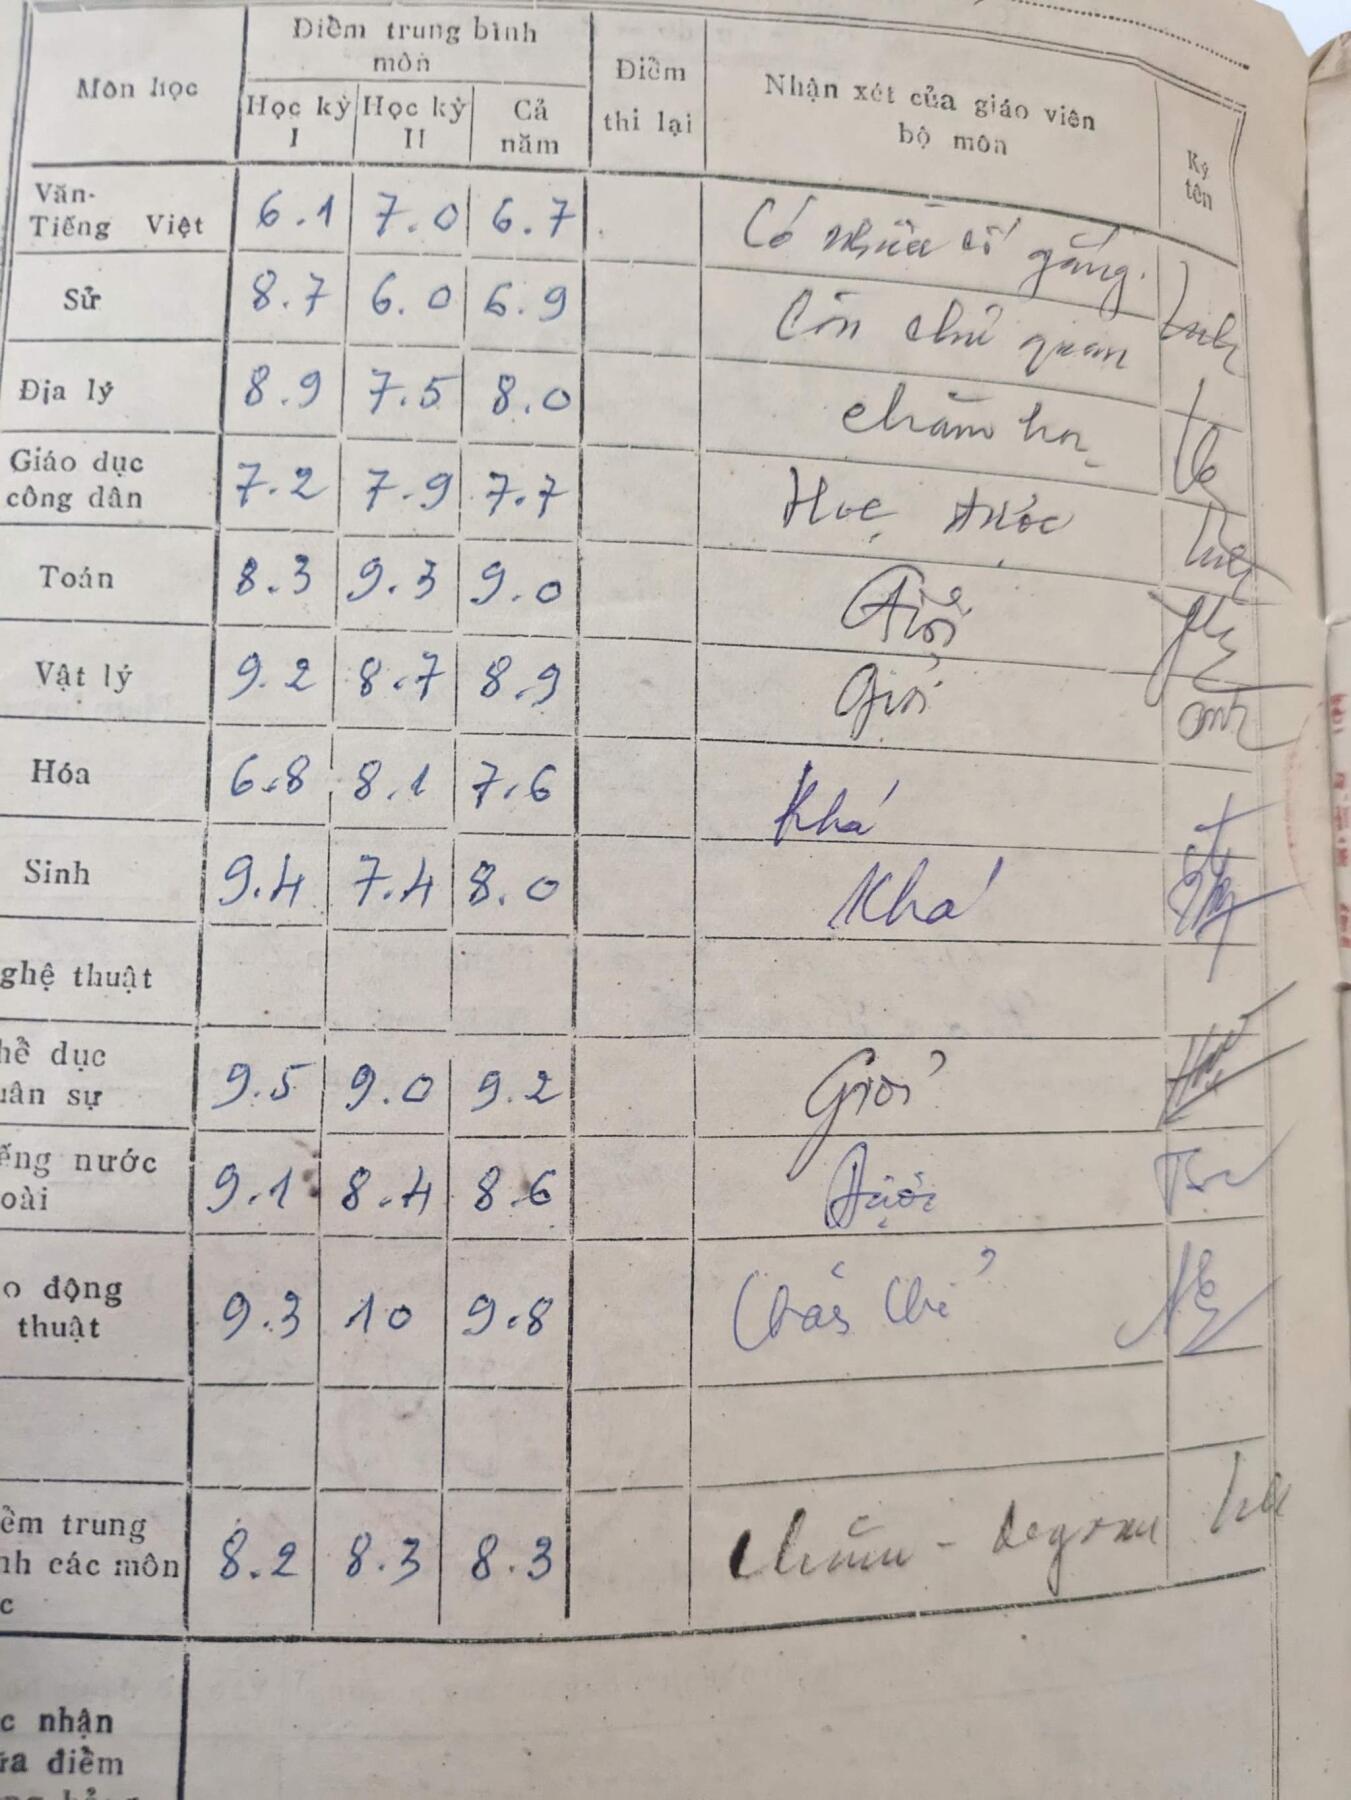 Môn học
Điểm trung bình
môn
Học kỳ
I
Học kỳ
II
Cả
năm
Điểm
thi lại
Nhận xét của giáo viên
bộ môn
Ký
tên
Văn-
Tiếng Việt
6.1 7.0 6.7
Có nhiều cố gắng.
Sử
8.7 6.0 6.9
Còn chủ quan
Địa lý
8.9 7.5 8.0
chăm
Giáo dục
công dân
7.2 7.9 7.7
Học được
Toán
8.3 9.3 9.0
Giỏi
Vật lý
9.2 8.7 8.9
Giỏi
anh
Hóa
6.8 8.1 7.6
Khá
Sinh
9.4 7.4 8.0
Khá
ghệ thuật
hể dục
uân sự
9.5 9.0 9.2
Giỏi
ếng nước
oài
9.1 8.4 8.6
Được
o động
thuật
9.3 10 9.8
Chỉ
ểm trung
nh các môn
c
8.2 8.3 8.3
chăm - ngoan
c nhận
ửa điểm